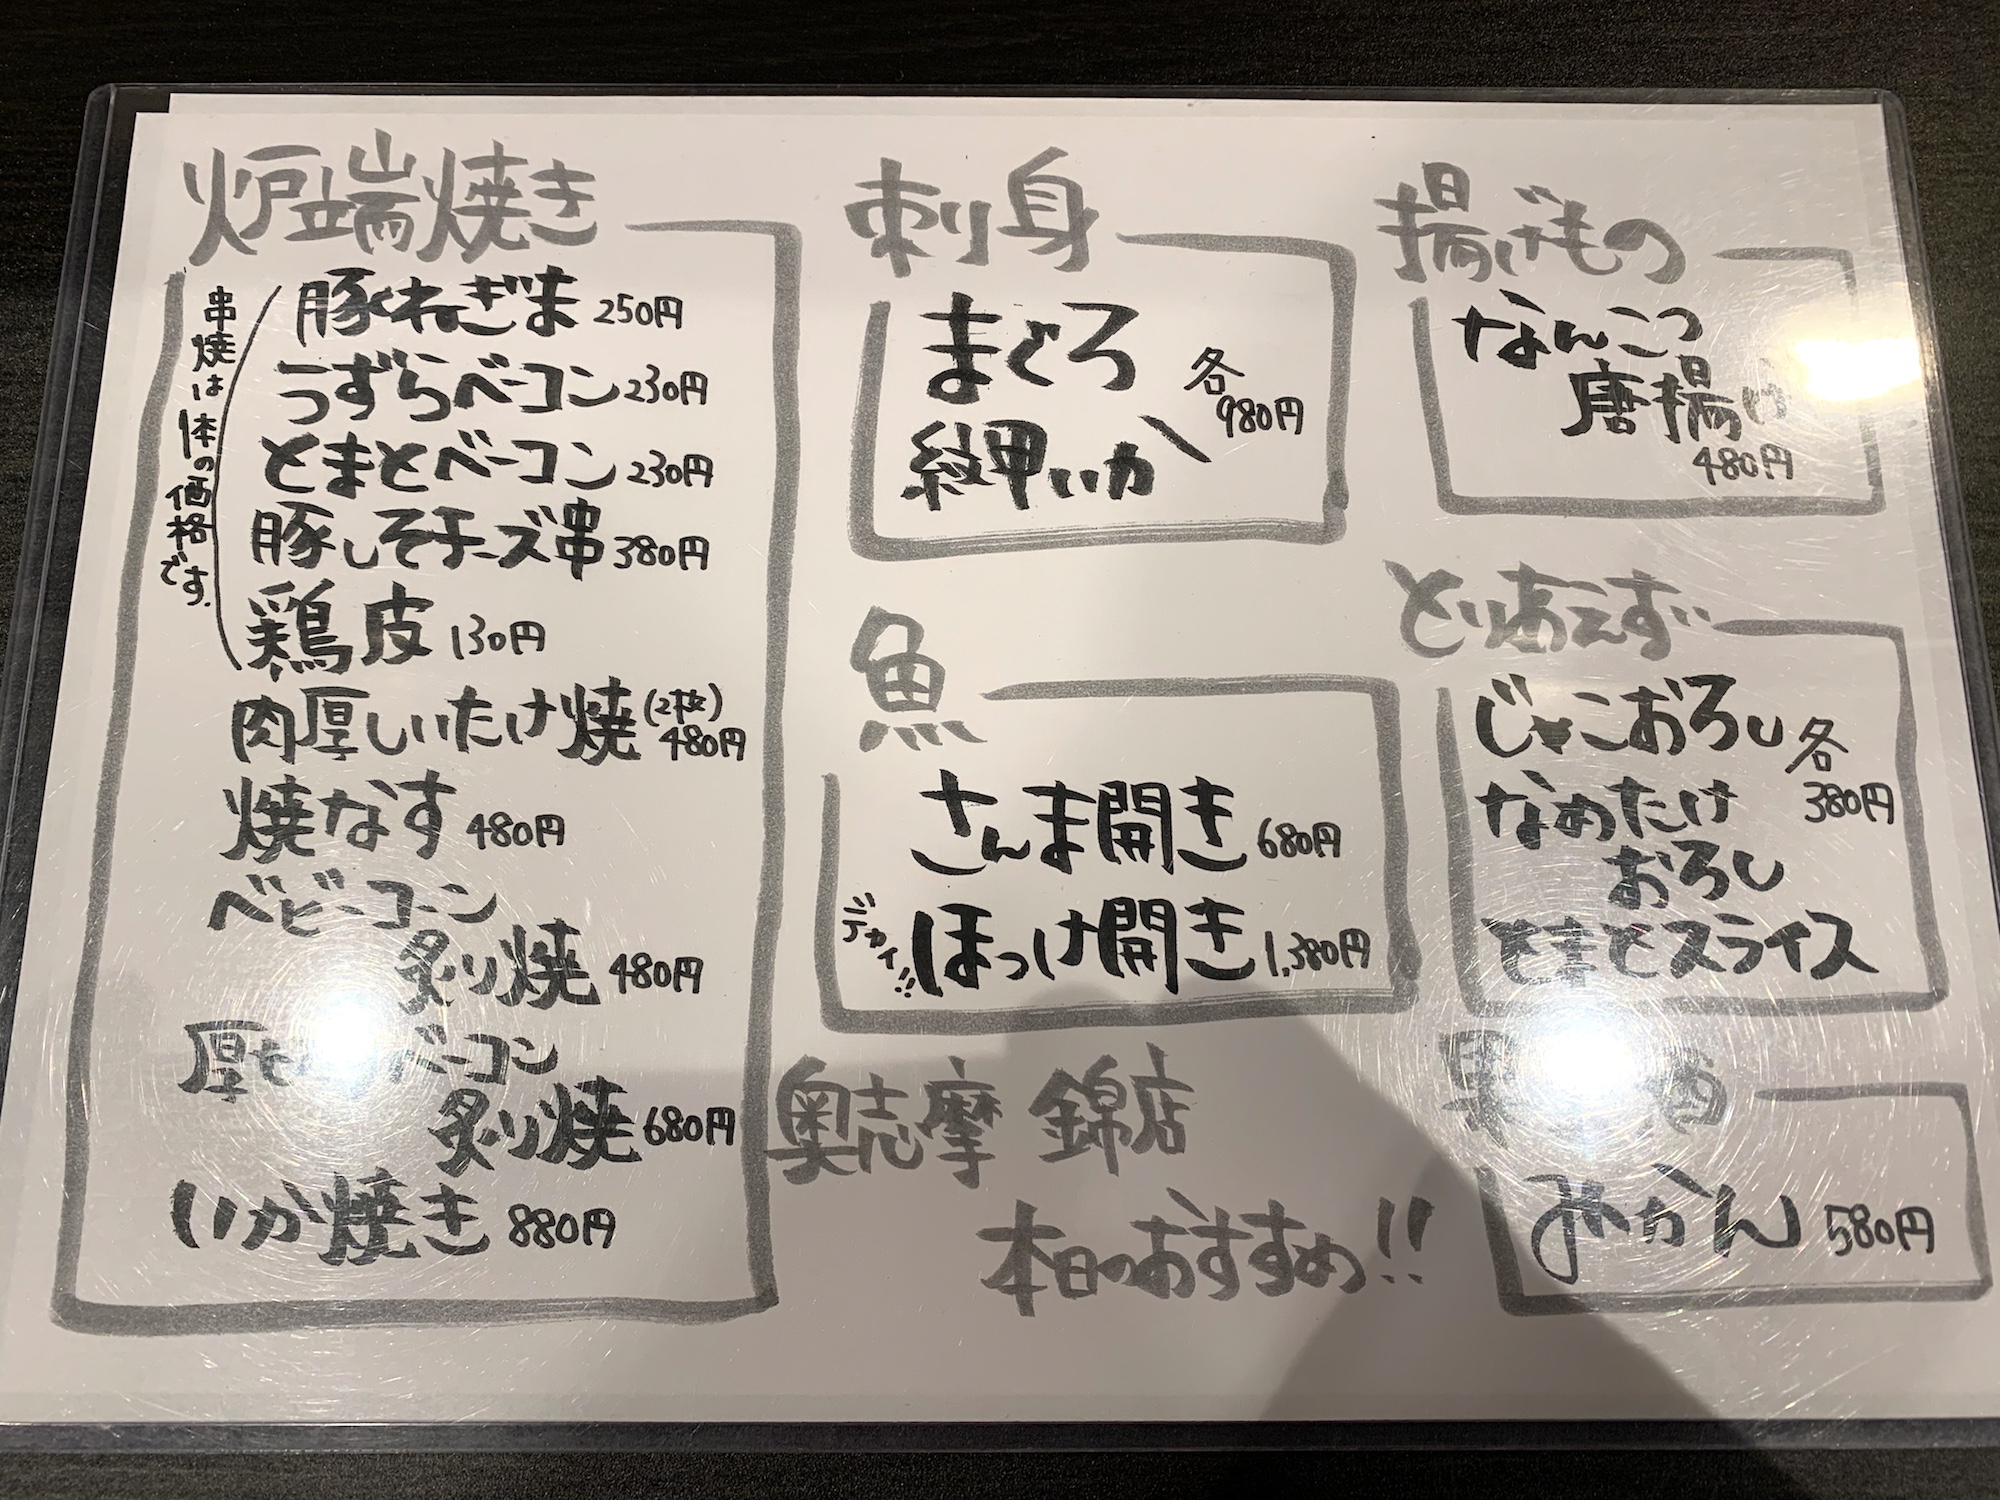 炉端焼き
串焼は1本の価格です.
豚くわねぎま 250円
うずらベーコン 230円
とまとベーコン 230円
豚しそチーズ串 380円
鶏皮 130円
肉厚しいたけ焼 (2枚) 480円
焼なす 480円
ベビーコーン
炙り焼 480円
ベーコン
炙り焼 680円
いか焼き 880円
刺身
まぐろ
紋甲いか
各980円
魚
さんま開き 680円
デカイ!! ほっけ開き 1,380円
揚げもの
なんこつ
唐揚げ
480円
とりあえず
じゃこおろし
なめたけ
おろし
とまとスライス
各380円
みかん 580円
奥志摩 錦店
本日のおすすめ!!